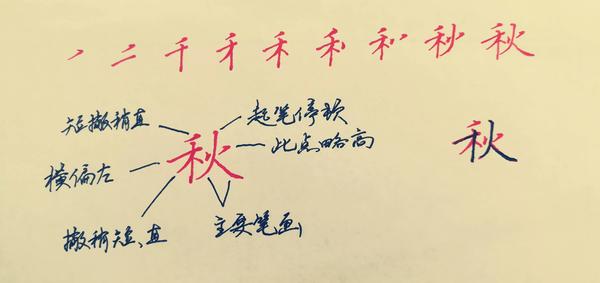 丿 二 千 禾 秋
短撇稍直
起笔停顿
此点略高
秋
秋
横偏左
撇稍短、直
主要笔画